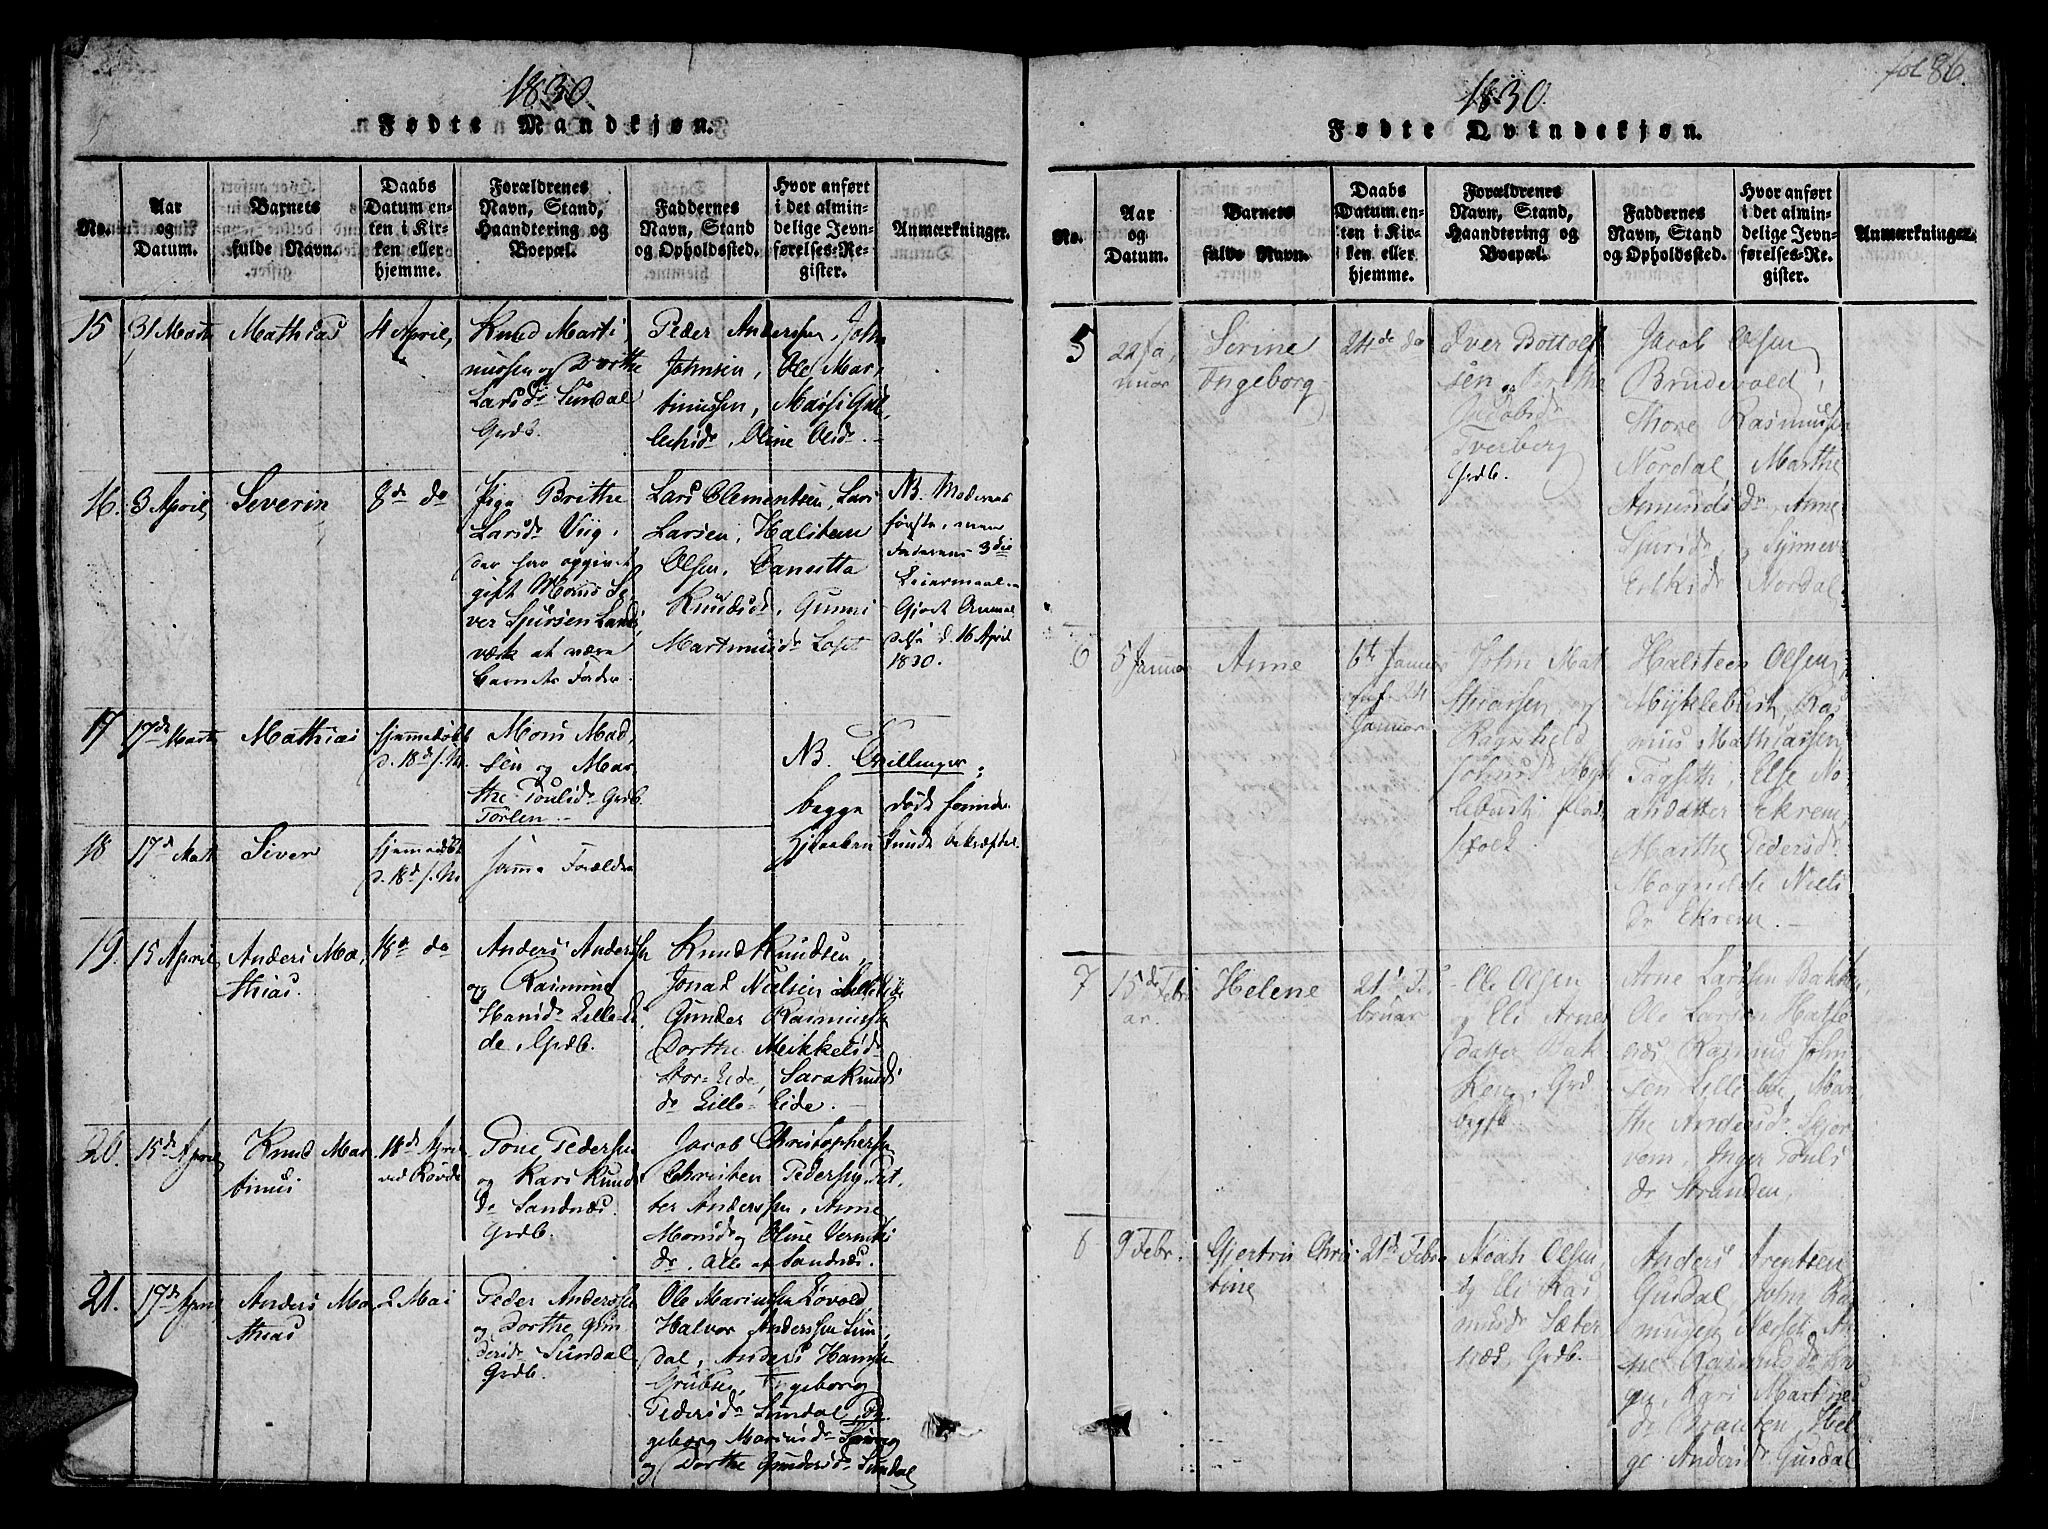 1830
Fødte Mandkjøn.
No.
Aar og Datum.
Barnets fulde Navn.
Daabs Datum enten i Kirken eller hjemme.
Forældrenes Navn, Stand, Haandtering og Boepæl.
Faddernes Navn, Stand og Opholdssted.
Hvor anført i det almindelige Jevnførelses-Register.
Anmærkninger.
15
31 Marts
Mathias
4 April,
Knud Marti
nussen og Dorthe
Larsdr Sundal
Grdb.
Peder Anderssen, John
Johnsen, Ole Mar,
tinussen,
Oline Olsdr.
16.
3 April,
Severin
8de do
Pige Brithe
Larsdr Viig,
der har opgivet
gift Mons
ver Sjursen
værk at være
Barnets Fader.
Lars Clementsen, Lars
Larsen, Halsteen
Olsen, Canutta
Knudsdr, Gunni
Martinusdr Løset
NB. Moderens
første, men
Faderens 3die
Leiermaal.
Gjort Anmel
delse d. 16 April
1830.
17
17de Marts
Mathias
hjemmedøbt
d. 18de s. M.
Mons Mad,
sen og Mar
the Poulsdr Grdb.
Torlen.
NB. Tvillinger,
begge døde forinden
18
17de Marts
Siver
hjemmedøbt
d. 18de s. M.
samme Forældre
19.
15 April,
Anders Ma,
thias.
18de do
Anders Anderssen
og Rasmine
Hansdr Lille-Ei
de, Grdb.
Knud Knudsen,
Jonas Nielsen Lille Eide
Gunder Rasmussen
Dorthe Mikkelsdr
Stor-Eide, Sara Knuds
dr Lille-Eide.
20.
15de April
Knud Mar
tinus
18de April
ved Rovde
Tone Pedersen
og Kari Knuds
dr Sandnæs.
Grdb.
Jacob Christophersen
Christen Pedersen, Pet,
ter Anderssen, Anne
Monsdr og Oline
dr. Alle af Sandnæs.
21.
17de April
Anders Ma
thias
2 Mai
Peder Anderssen
og Dorthe Gun
dersdr Sundal
Grdb.
Ole Marinussen Løvold,
Halvor Anderssen Sun,
dal, Anders Hanssen
Grubse, Ingeborg
Pedersdr Sundal, In
geborg Marinusdr
og Dorthe Gundersdr Sundal
fol 86.
1830.
Fødte Qvindekjøn.
No.
Aar og Datum.
Barnets fulde Navn.
Daabs Datum enten i Kirken eller hjemme.
Forældrenes Navn, Stand, Haandtering og Boepæl.
Faddernes Navn, Stand og Opholdssted.
Hvor anført i det almindelige Jevnførelses-Register.
Anmærkninger.
5
22 Ja,
nuar
Serine
Ingeborg
24de do
Iver Bottolf
sen og
Jacobsdr
Tverberg
Grdb.
Jacob Olsen
Brudevold,
Thore Rasmussen
Nordal, Marthe
Amundsdr, Anne
Sjursdr, og Synneve
Eriksdr Nordal
6
5 Januar
Anne
6te Januar
24
Januar
John Mat
thiassen, og
Ragnhild
Johnsdr Mykl
lebust
Halsteen Olsen
Myklebust, Ras
mus Mathiassen
Tagseth, Else No-
andatter Ekrem,
Marthe Pedersdr
Magnilde Niels
dr Ekrem.
7
15de Febr
ar.
Helene
21de Fe,
bruar
Ole Olsen
og Eli Arnes
datter Bak
ken, Grd
bygsl
Arne Larssen Bakke,
Ole Larsen
Rasmus John
sen Lillebøe, Mar
the Andersdr Skjor
vem, Inger Pouls
dr Stranden,
6
9 Febr.
Gjertru Chris
tine
21de Febr
Noah Olsen,
og Eli Ras
musdr Sæter
næs, Grdb.
Anders Arentsen
Gusdal, John Ra
musen
ne Rasmusdr
ge, Kari Martines
dr Brauten, Hel
ge Andersdr Gusdal